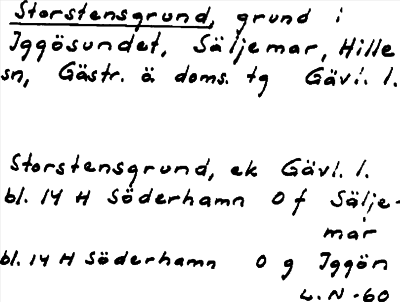 Storstensgrund, grund i
Iggösundet, Säljemar, Hille
sn, Gästr. ö. doms. tg Gävl. l.
Storstensgrund, ek Gävl. l.
bl. 14 H Söderhamn 0 f Sälje-
mar
bl. 14 H Söderhamn 0 g Iggön
L.N-60